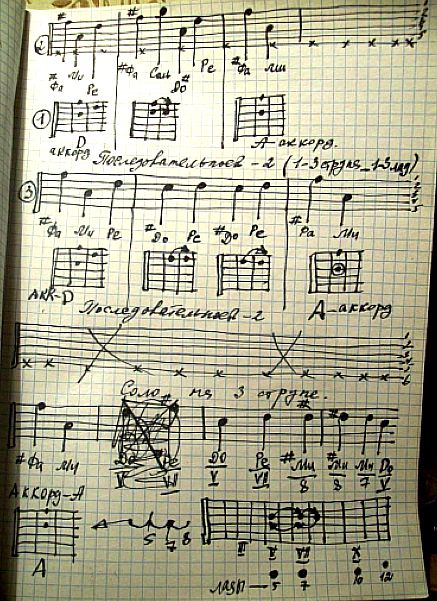 2
#Фа Ми Ре #Фа Соль До# Ре #Фа Ми
1
D аккорд А-аккорд.
Последовательность-2 (1-3 струна_1-3 лад)
3
#Фа Ми Ре #До Ре #До Ре #Фа Ми
Акк-D А-аккорд
Последовательность-2
Соло на 3 струне.
#Фа Ми До Ре #Ми Ми До
V VII 8 8 7 V
Аккорд-А
5 7 8
III V VII
А
лады 5 7 10 12